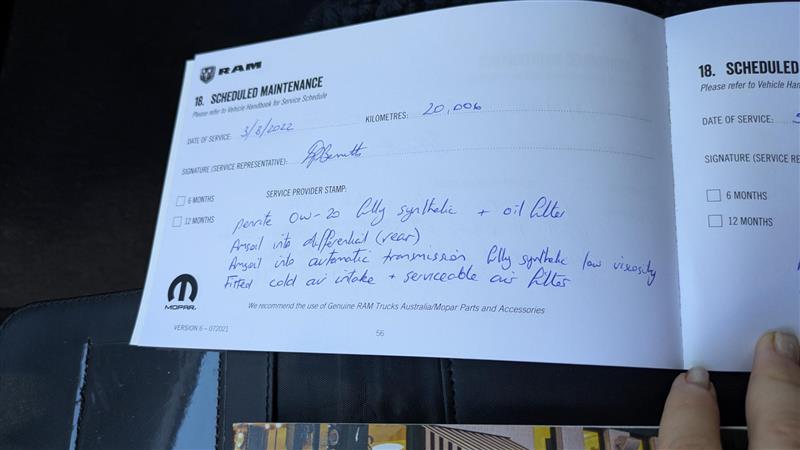 RAM
18. SCHEDULED MAINTENANCE
Please refer to Vehicle Handbook for Service Schedule
DATE OF SERVICE: 3/8/2022 KILOMETRES: 20,006
SIGNATURE (SERVICE REPRESENTATIVE):
6 MONTHS
12 MONTHS
SERVICE PROVIDER STAMP:
penrite 0w-20 fully synthetic + oil filter
Amsoil into differential (rear)
Amsoil into automatic transmission fully synthetic low viscosity
Fitted cold air intake + serviceable air filter
MOPAR
We recommend the use of Genuine RAM Trucks Australia/Mopar Parts and Accessories
VERSION 6 – 072021
56
18. SCHEDULED
Please refer to Vehicle
DATE OF SERVICE:
SIGNATURE (SERVICE
6 MONTHS
12 MONTHS